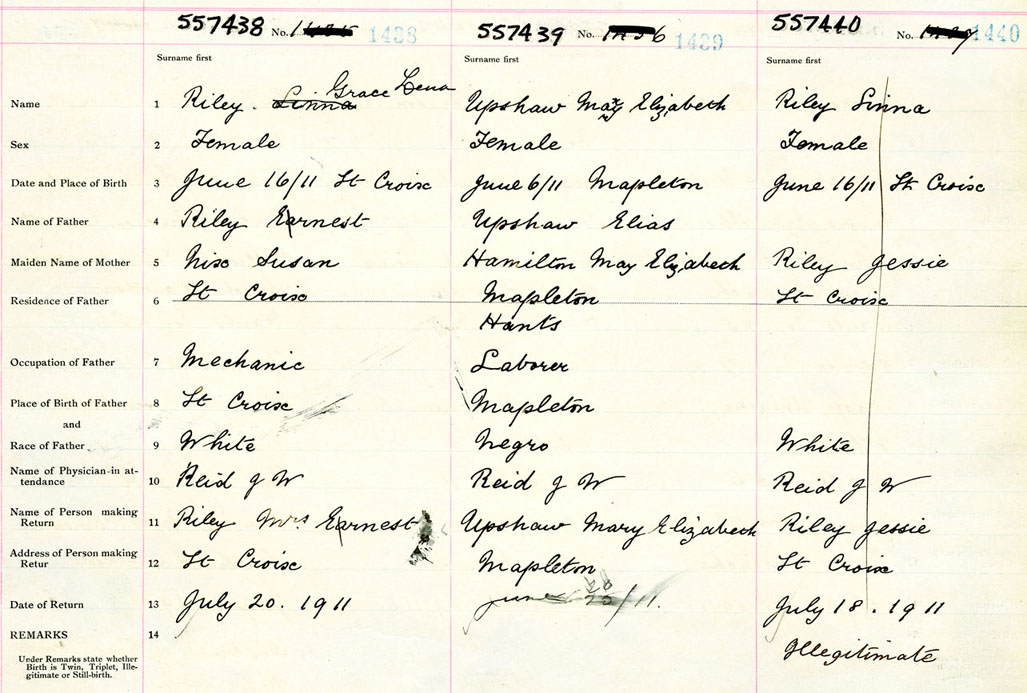 557438 No. 1438 557439 No. 1439 557440 No. 1440
Surname first Surname first Surname first
Grace Lena
Name 1 Riley. Linna Upshaw May Elizabeth Riley Linna
Sex 2 Female Female Female
Date and Place of Birth 3 June 16/11 St Croix June 6/11 Mapleton June 16/11 St Croix
Name of Father 4 Riley Earnest Upshaw Elias
Maiden Name of Mother 5 Nix Susan Hamilton May Elizabeth Riley Jessie
Residence of Father 6 St Croix Mapleton St Croix
Hants
Occupation of Father 7 Mechanic Laborer
Place of Birth of Father 8 St Croix Mapleton
and
Race of Father 9 White Negro White
Name of Physician in at-
tendance 10 Reid J W Reid J W Reid J W
Name of Person making
Return 11 Riley Mrs Earnest Upshaw Mary Elizabeth Riley Jessie
Address of Person making
Retur 12 St Croix Mapleton St Croix
Date of Return 13 July 20. 1911 June /11. July 18. 1911
REMARKS 14
Illegitimate
Under Remarks state whether
Birth is Twin, Triplet, Ille-
gitimate or Still-birth.